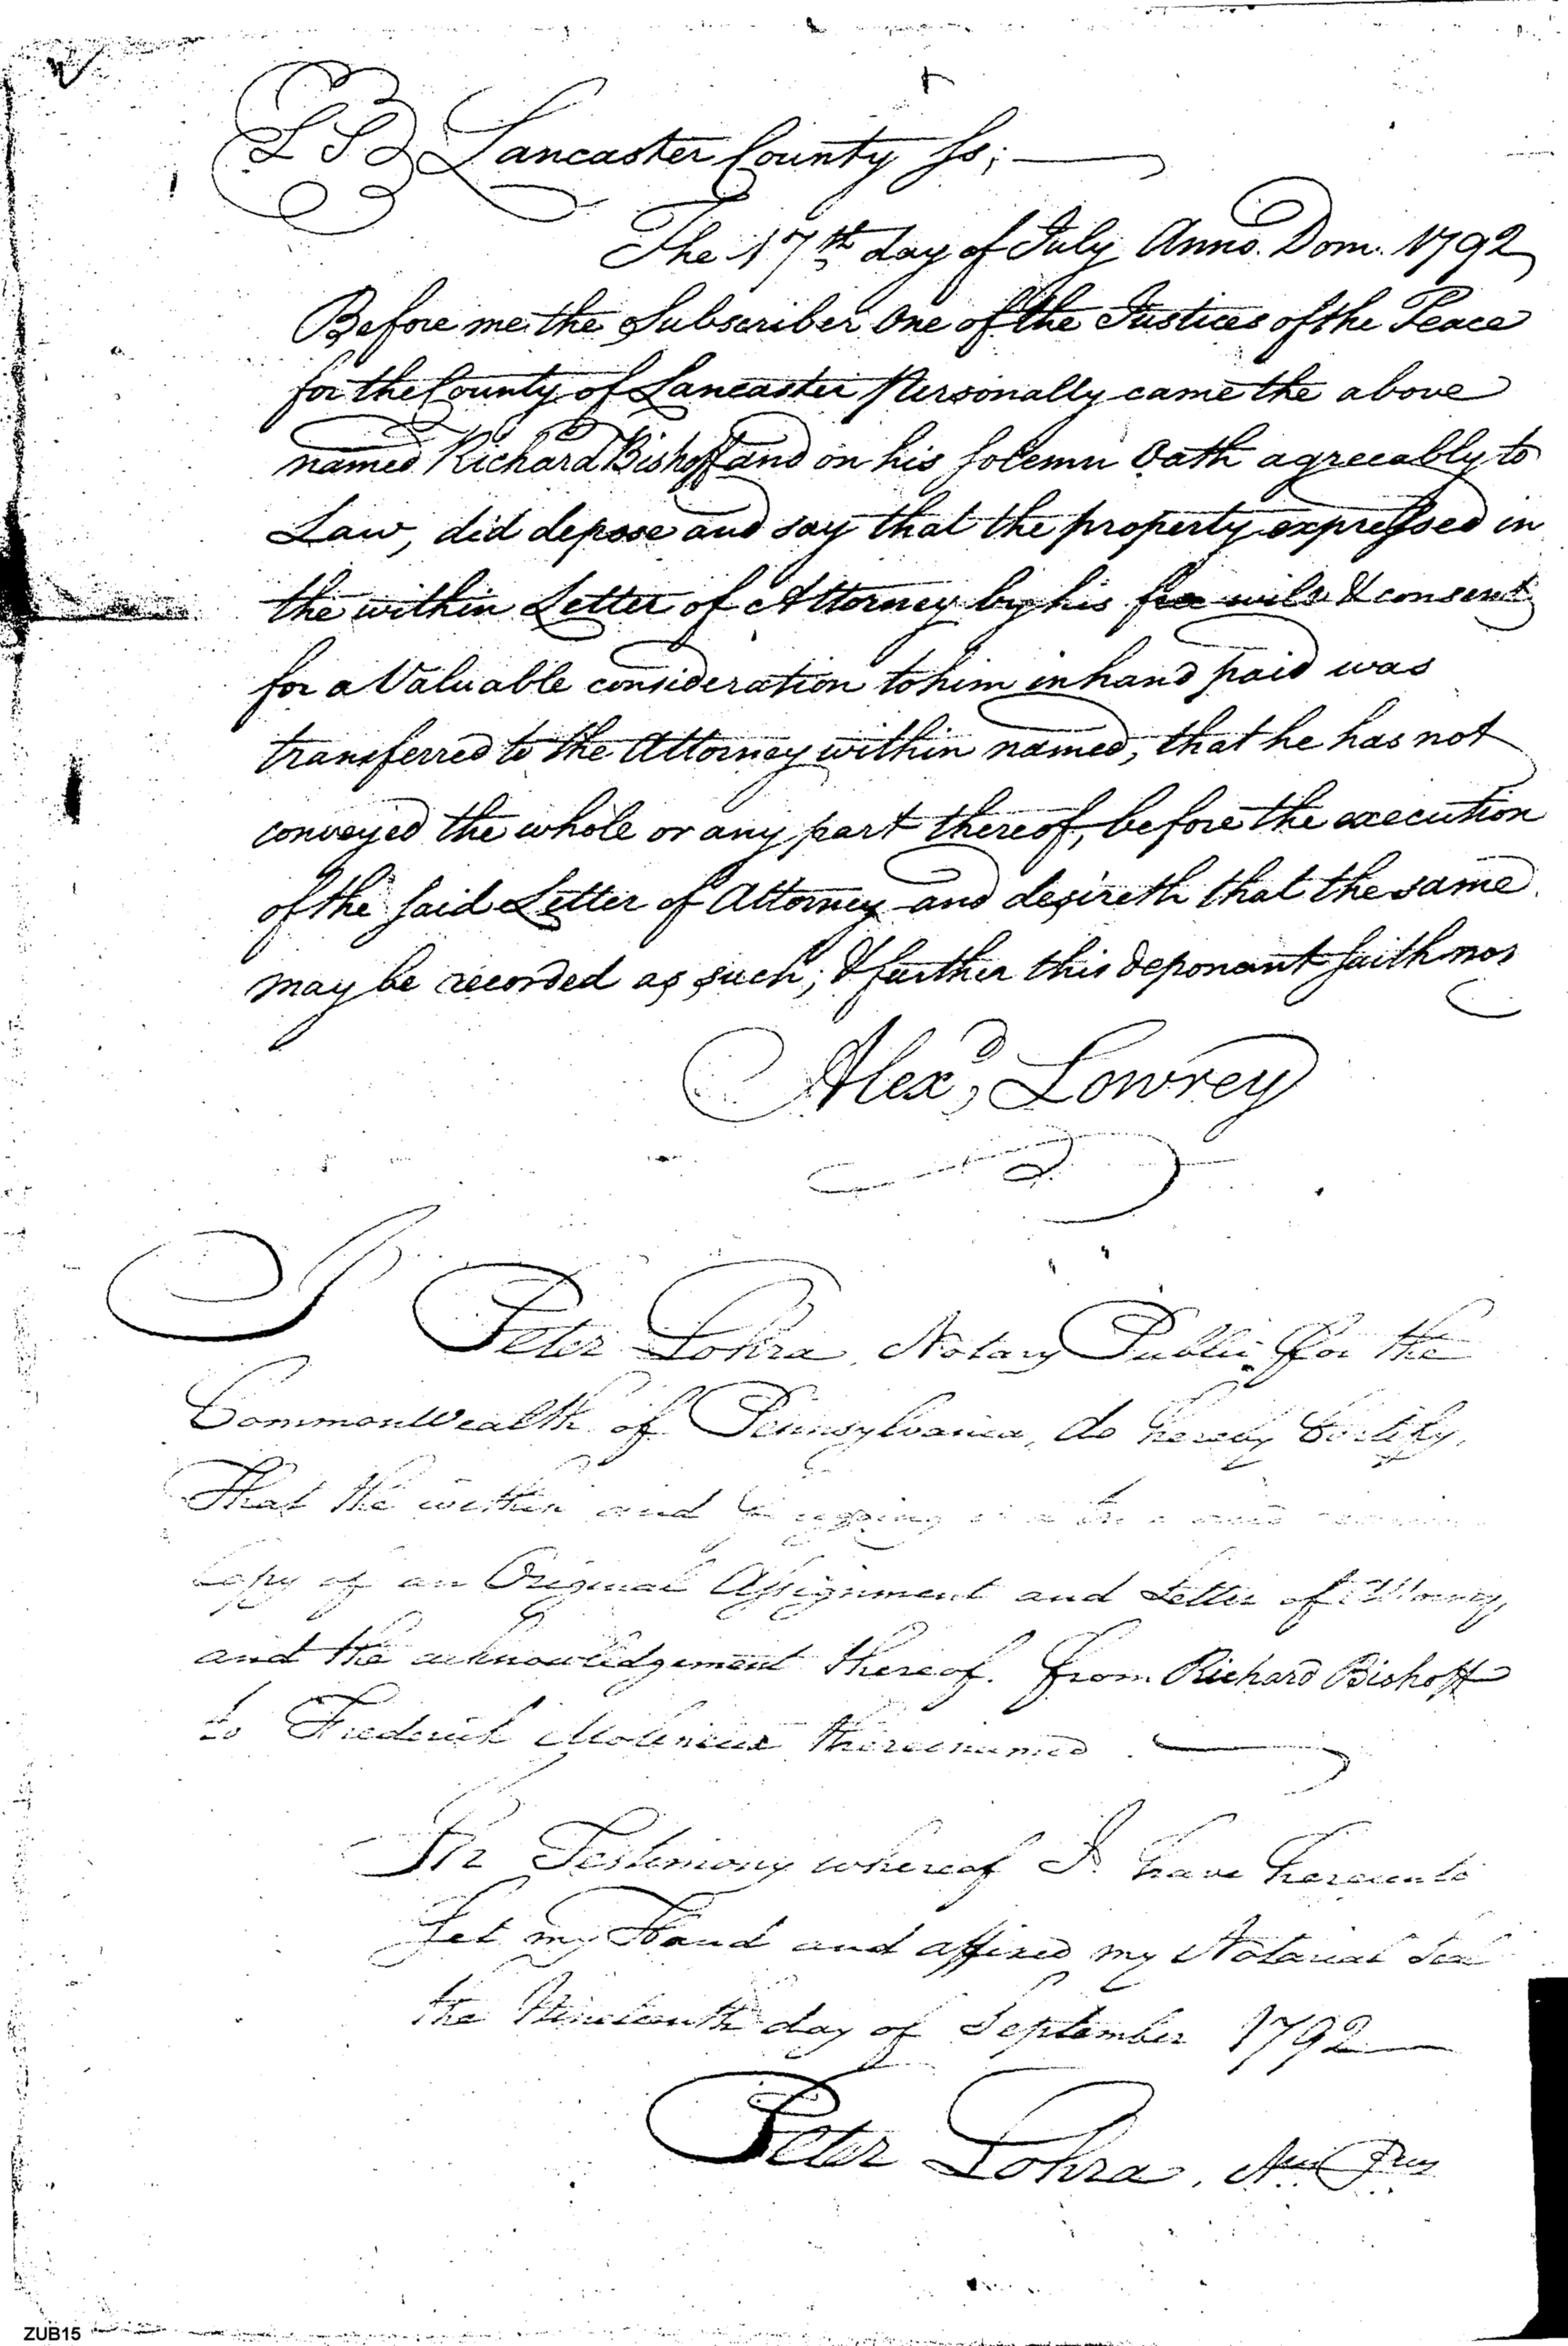 L S Lancaster County Ss;
The 17th day of July Anno. Dom. 1792
Before me the Subscriber One of the Justices of the Peace
for the County of Lancaster Personally came the above
named Richard Bishoff and on his solemn Oath agreeably to
Law, did depose and say that the property expressed in
the within Letter of Attorney by his free will & consent
for a Valuable consideration to him in hand paid was
transferred to the Attorney within named, that he has not
conveyed the whole or any part thereof, before the execution
of the said Letter of Attorney and desireth that the same
may be recorded as such; & further this deponant saith not
Alexd, Lowrey
I Peter Lohra, Notary Public for the
CommonWealth of Pennsylvania, do hereby Certify,
That the within and foregoing is a
Copy of an Original Assignment and Letter of Attorney,
and the acknowledgement thereof. from Richard Bishoff
to Frederick Molineux thereinnamed.
In Testimony whereof I have hereunto
Set my Hand and affixed my Notarial Seal
the Nineteenth day of September 1792
Peter Lohra,
ZUB15